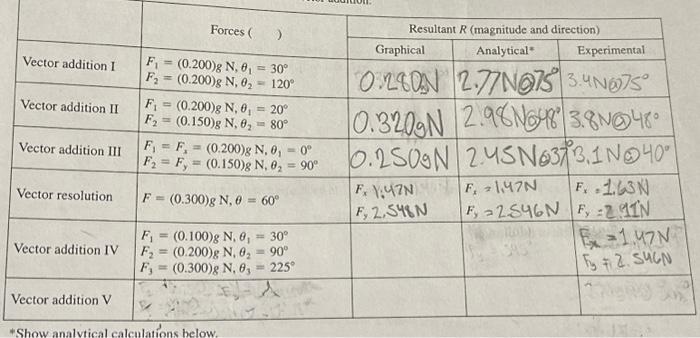 Forces ( )
Resultant R (magnitude and direction)
Graphical
Analytical*
Experimental
Vector addition I
F₁ = (0.200)g N, θ₁ = 30°
F₂ = (0.200)g N, θ₂ = 120°
0.280gN
2.77N@75°
3.4N@75°
Vector addition II
F₁ = (0.200)g N, θ₁ = 20°
F₂ = (0.150)g N, θ₂ = 80°
0.320gN
2.98N@48°
3.8N@48°
Vector addition III
F₁ = Fₓ = (0.200)g N, θ₁ = 0°
F₂ = Fᵧ = (0.150)g N, θ₂ = 90°
0.250gN
2.45N@37°
3.1N@40°
Vector resolution
F = (0.300)g N, θ = 60°
Fₓ 1.47N
Fᵧ 2.548N
Fₓ = 1.47N
Fᵧ = 2.546N
Fₓ = 1.63N
Fᵧ = 2.91N
Vector addition IV
F₁ = (0.100)g N, θ₁ = 30°
F₂ = (0.200)g N, θ₂ = 90°
F₃ = (0.300)g N, θ₃ = 225°
Fx = 1.47N
Fy = 2.546N
Vector addition V
*Show analytical calculations below.